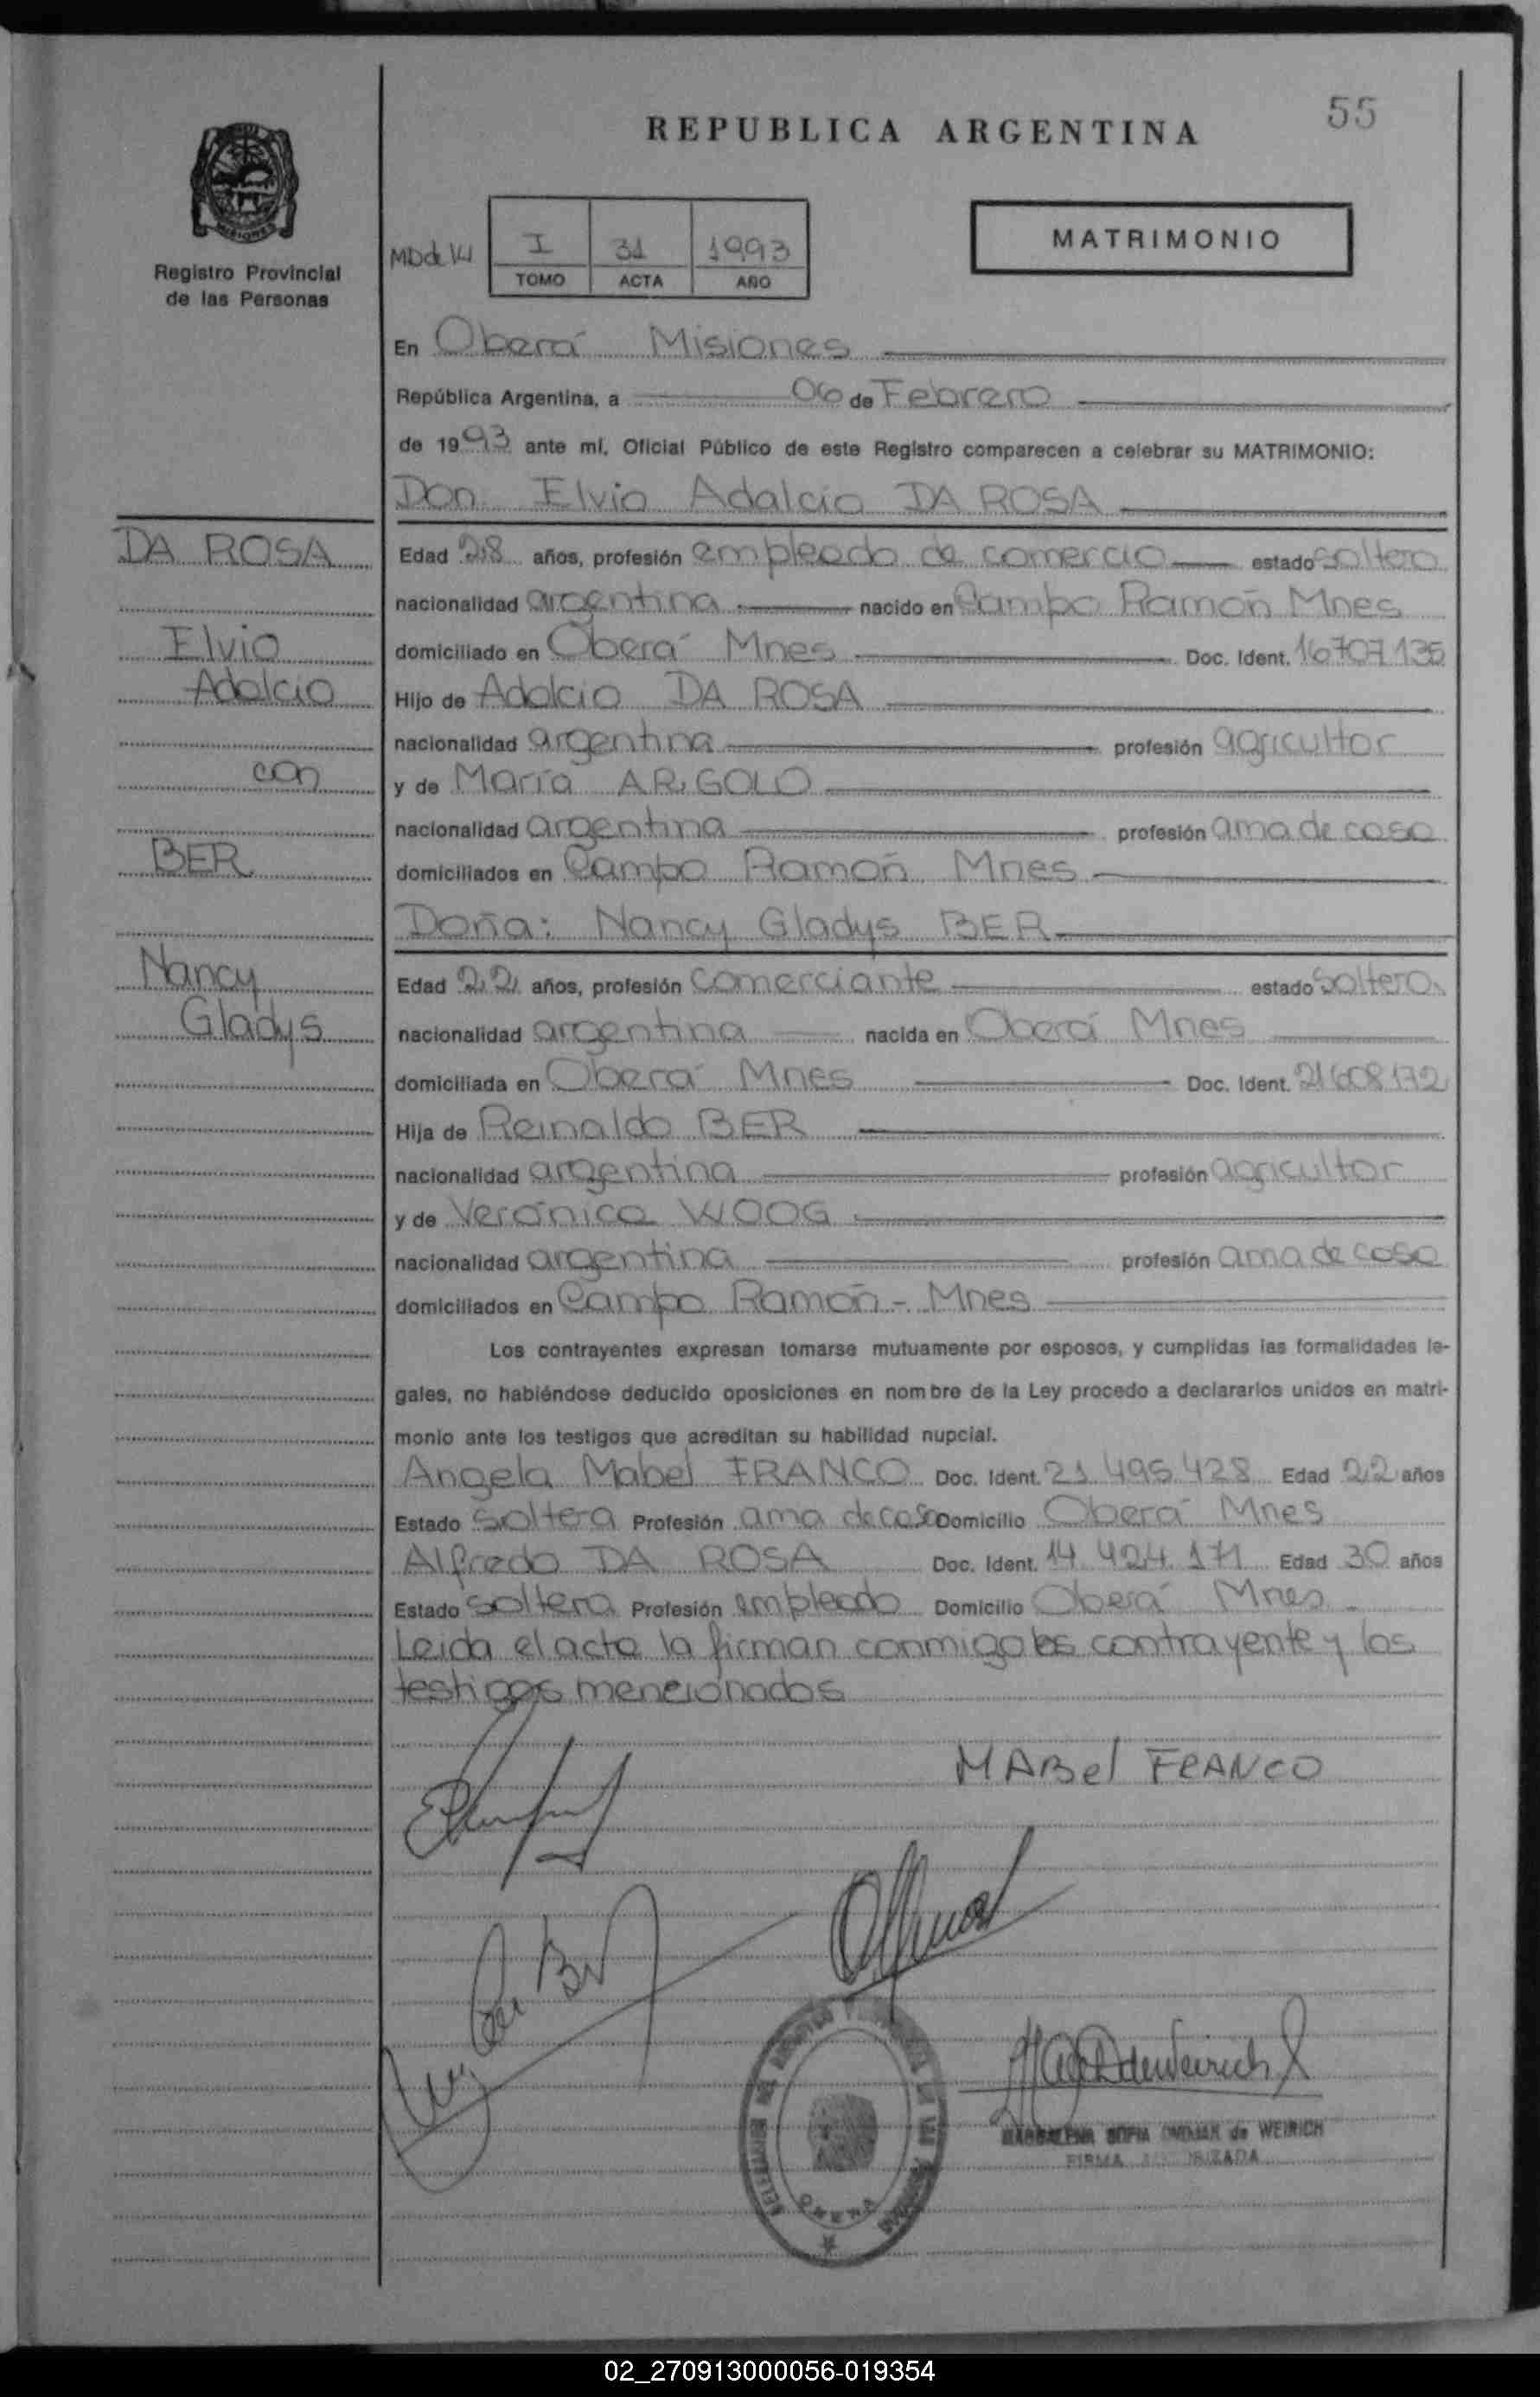 55
REPUBLICA ARGENTINA
MISIONES
Registro Provincial
de las Personas
I 31 1993
TOMO ACTA AÑO
MATRIMONIO
En Oberá Misiones
República Argentina, a 06 de Febrero
de 1993 ante mí, Oficial Público de este Registro comparecen a celebrar su MATRIMONIO:
Don Elvio Adalcio DA ROSA
DA ROSA
Edad 28 años, profesión empleado de comercio estado soltero
nacionalidad argentina nacido en Campo Ramón Mnes
Elvio
domiciliado en Oberá Mnes Doc. Ident. 16707135
Adalcio
Hijo de Adalcio DA ROSA
nacionalidad argentina profesión agricultor
con
y de María ARIGOLO
nacionalidad argentina profesión ama de casa
BER
domiciliados en Campo Ramón Mnes
Doña: Nancy Gladys BER
Nancy
Edad 22 años, profesión comerciante estado soltera
Gladys
nacionalidad argentina nacida en Oberá Mnes
domiciliada en Oberá Mnes Doc. Ident. 21608172
Hija de Reinaldo BER
nacionalidad argentina profesión agricultor
y de Verónica WOOG
nacionalidad argentina profesión ama de casa
domiciliados en Campo Ramón - Mnes
Los contrayentes expresan tomarse mutuamente por esposos, y cumplidas las formalidades le-
gales, no habiéndose deducido oposiciones en nombre de la Ley procedo a declararlos unidos en matri-
monio ante los testigos que acreditan su habilidad nupcial.
Angela Mabel FRANCO Doc. Ident. 21.495.428 Edad 22 años
Estado soltera Profesión ama de casa Domicilio Oberá Mnes
Alfredo DA ROSA Doc. Ident. 14.424.171 Edad 30 años
Estado soltero Profesión empleado Domicilio Oberá Mnes
Leida el acta la firman conmigo los contrayente y los
testigos mencionados
MABel FRANCO
MAGDALENA SOFIA de WEIRICH
FIRMA AUTORIZADA
OBERA
02_270913000056-019354